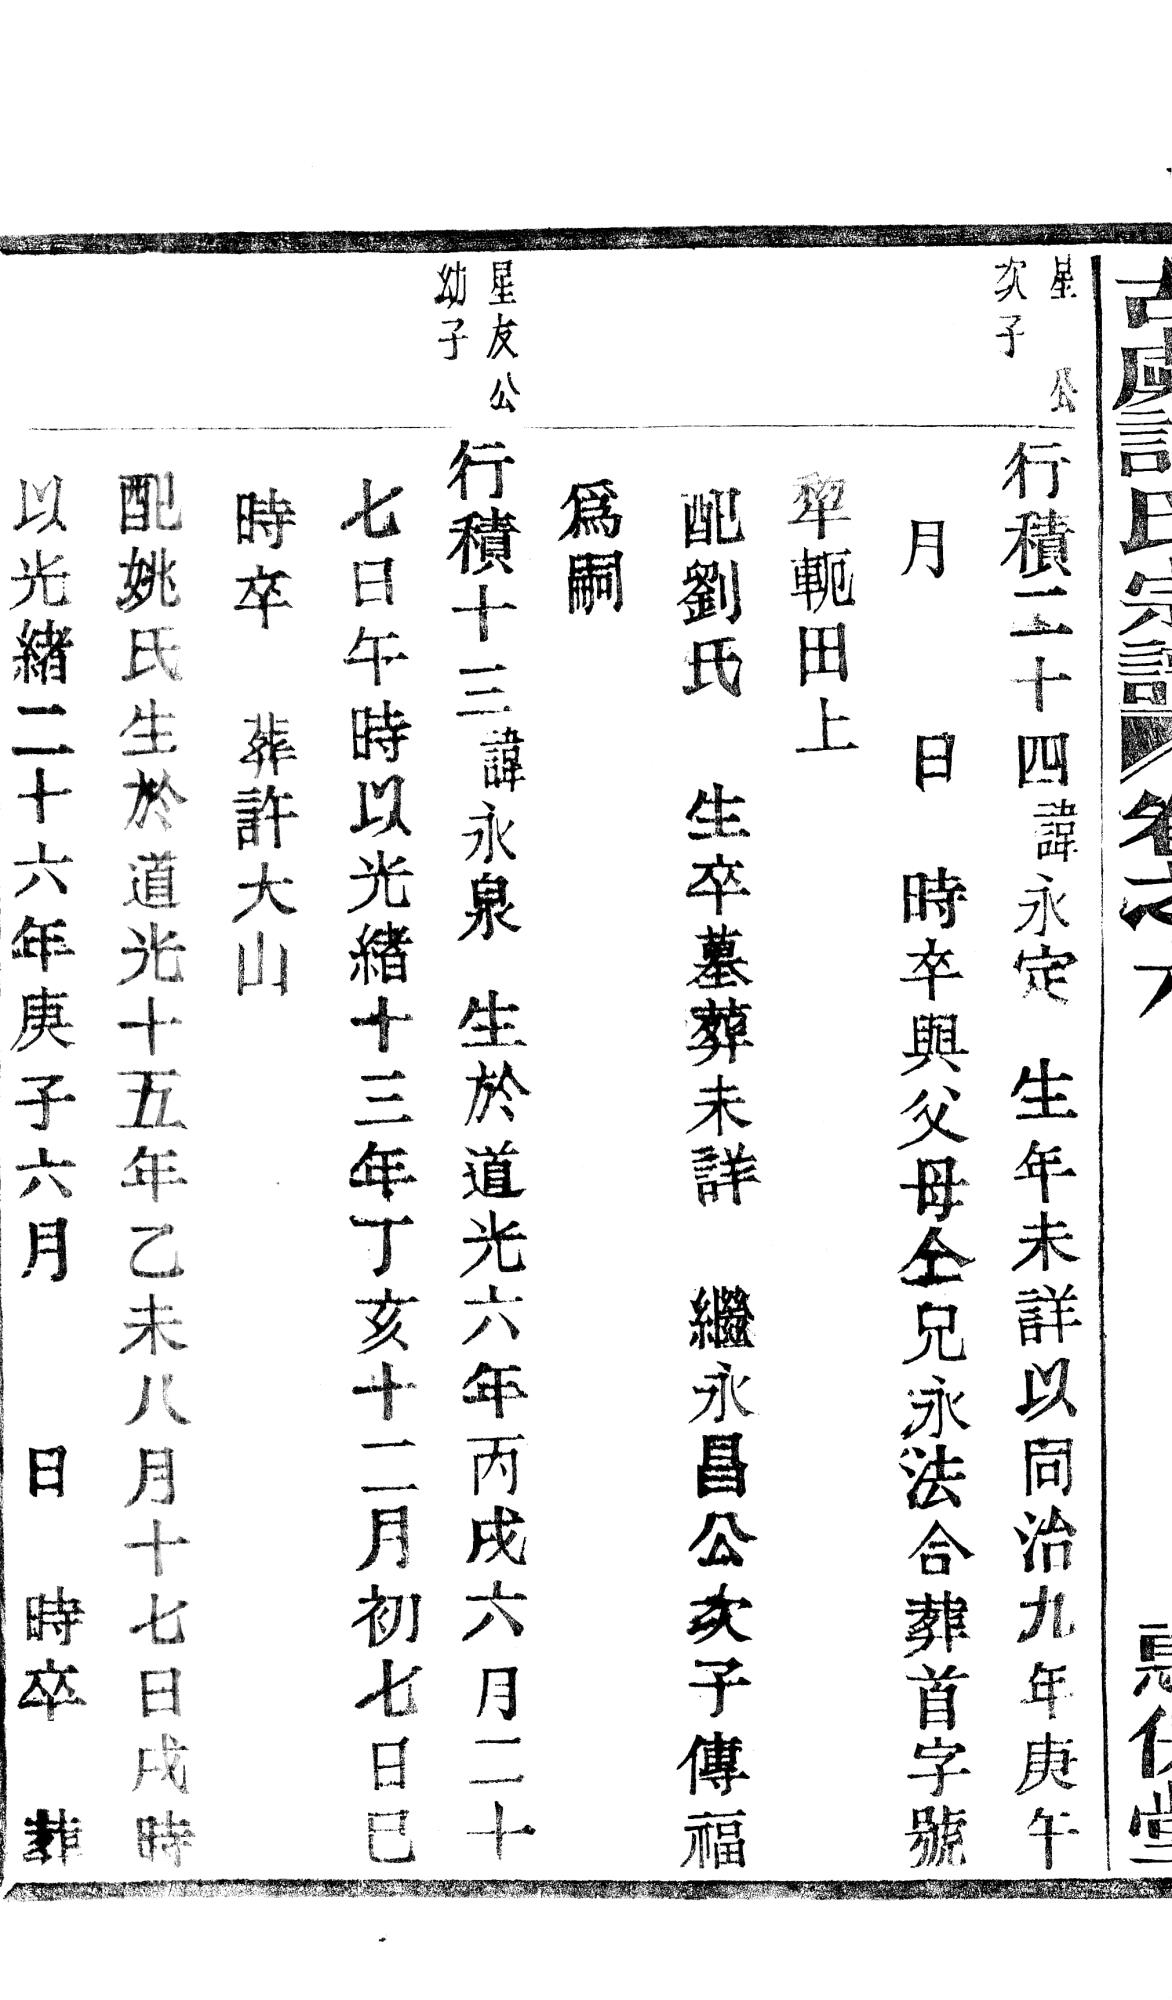 古虞許氏宗譜 卷之
星 公
次子
行積二十四諱永定 生年未詳以同治九年庚午
月 日 時卒與父母仝兄永法合葬首字號
犂軛田上
配劉氏 生卒墓葬未詳 繼永昌公次子傳福
爲嗣
星友公
幼子
行積十三諱永泉 生於道光六年丙戌六月二十
七日午時以光緒十三年丁亥十二月初七日巳
時卒 葬許大山
配姚氏生於道光十五年乙未八月十七日戌時
以光緒二十六年庚子六月 日 時卒 葬